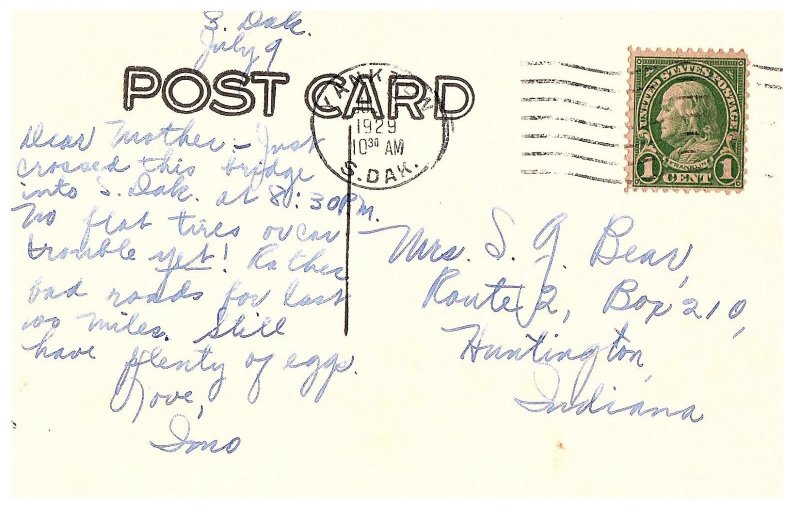 S. Dak.
July 9
POST CARD
YANKTON
1929
10 30 AM
S. DAK.
UNITED STATES POSTAGE
FRANKLIN
1 CENT 1
Dear Mother - Just
crossed this bridge
into S. Dak. at 8:30 P.M.
No flat tires or car
trouble yet! Rather
bad roads for last
100 miles. Still
have plenty of eggs.
Love,
Imo
Mrs. S. J. Bear,
Route 2, Box 210,
Huntington,
Indiana